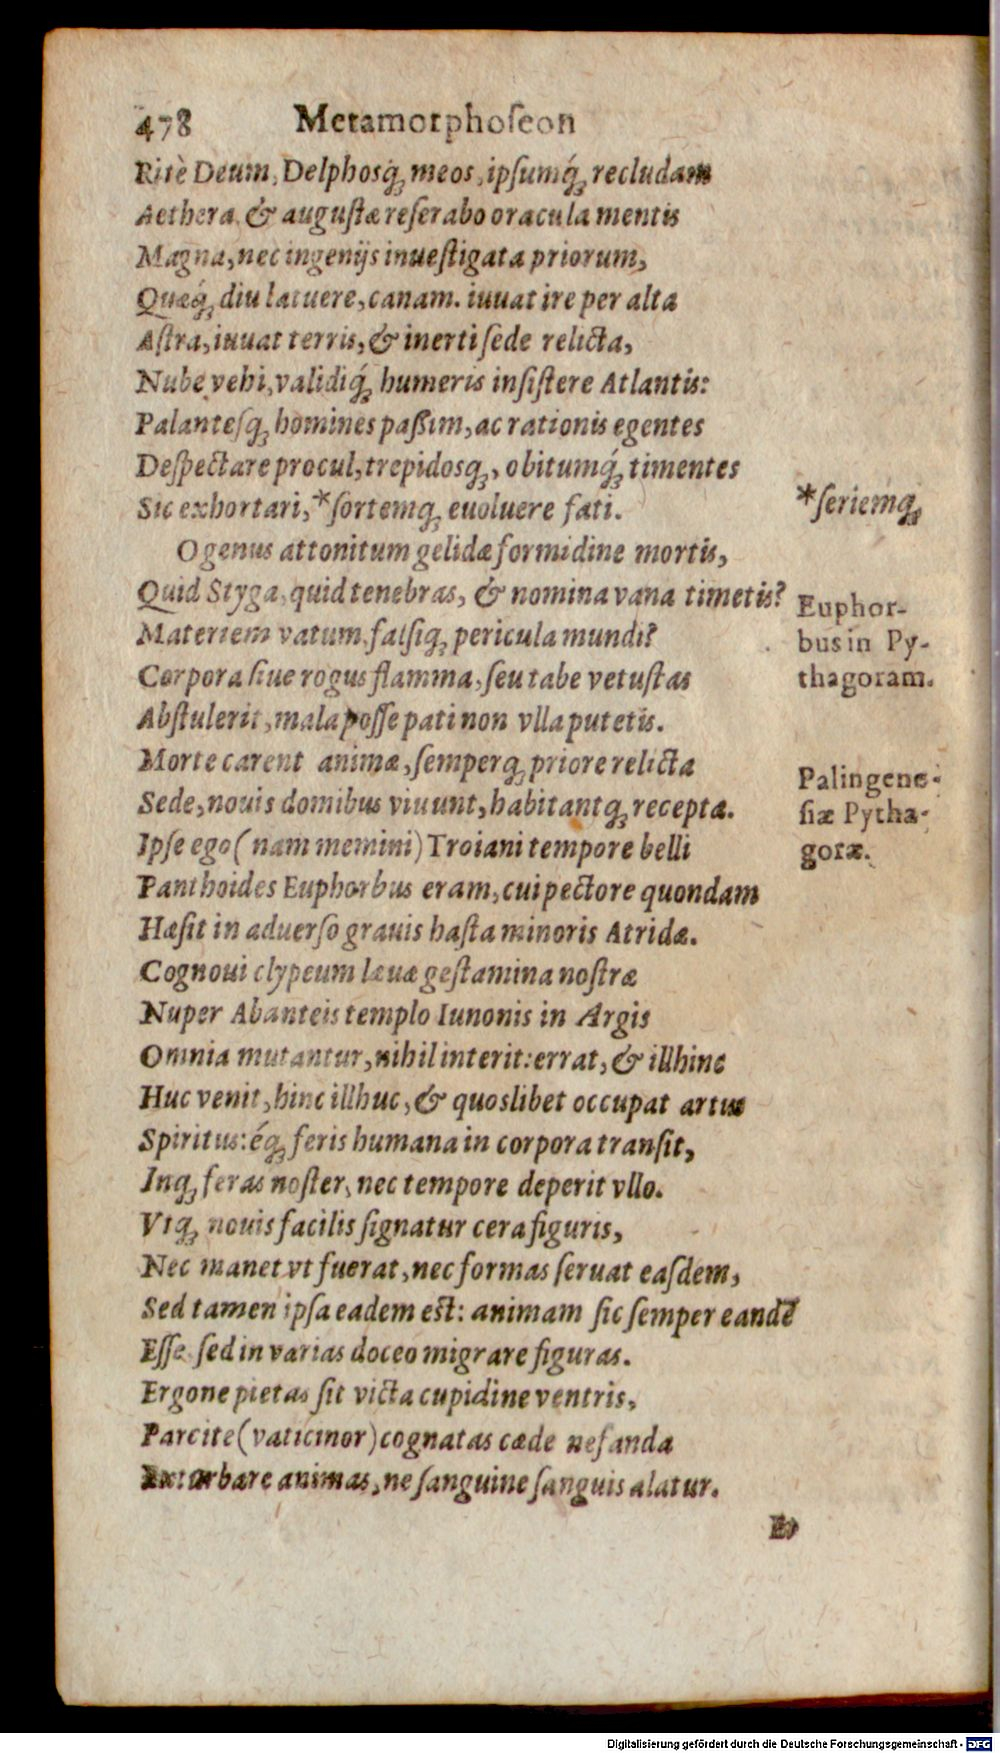 478 Metamorphoſeon
Ritè Deum, Delphosq́; meos, ipſumq́; recludam
Aethera, & auguſtæ reſerabo oracula mentis
Magna, nec ingenijs inueſtigata priorum,
Quæq́; diu latuere, canam. iuuat ire per alta
Aſtra, iuuat terris, & inerti ſede relicta,
Nube vehi, validiq́; humeris inſiſtere Atlantis:
Palanteſq; homines paßim, ac rationis egentes
Deſpectare procul, trepidosq;, obitumq́; timentes
Sic exhortari, *ſortemq; euoluere fati.
*ſeriemq;
O genus attonitum gelidæ formidine mortis,
Quid Styga, quid tenebras, & nomina vana timetis?
Materiem vatum, falſiq; pericula mundi?
Corpora ſiue rogus flamma, ſeu tabe vetuſtas
Abſtulerit, mala poſſe pati non vlla putetis.
Euphor-
bus in Py-
thagoram.
Morte carent animæ, ſemperq; priore relicta
Sede, nouis domibus viuunt, habitantq; receptæ.
Ipſe ego (nam memini) Troiani tempore belli
Palingene-
ſiæ Pytha-
goræ.
Panthoides Euphorbus eram, cui pectore quondam
Hæſit in aduerſo grauis haſta minoris Atridæ.
Cognoui clypeum læuæ geſtamina noſtræ
Nuper Abanteis templo Iunonis in Argis
Omnia mutantur, nihil interit: errat, & illhinc
Huc venit, hinc illhuc, & quoslibet occupat artus
Spiritus: éq; feris humana in corpora tranſit,
Inq; feras noſter, nec tempore deperit vllo.
Vtq; nouis facilis ſignatur cera figuris,
Nec manet vt fuerat, nec formas ſeruat eaſdem,
Sed tamen ipſa eadem eſt: animam ſic ſemper eandē
Eſſe ſed in varias doceo migrare figuras.
Ergo ne pietas ſit victa cupidine ventris,
Parcite (vaticinor) cognatas cæde nefanda
Exturbare animas, ne ſanguine ſanguis alatur.
Et
Digitalisierung gefördert durch die Deutsche Forschungsgemeinschaft - DFG